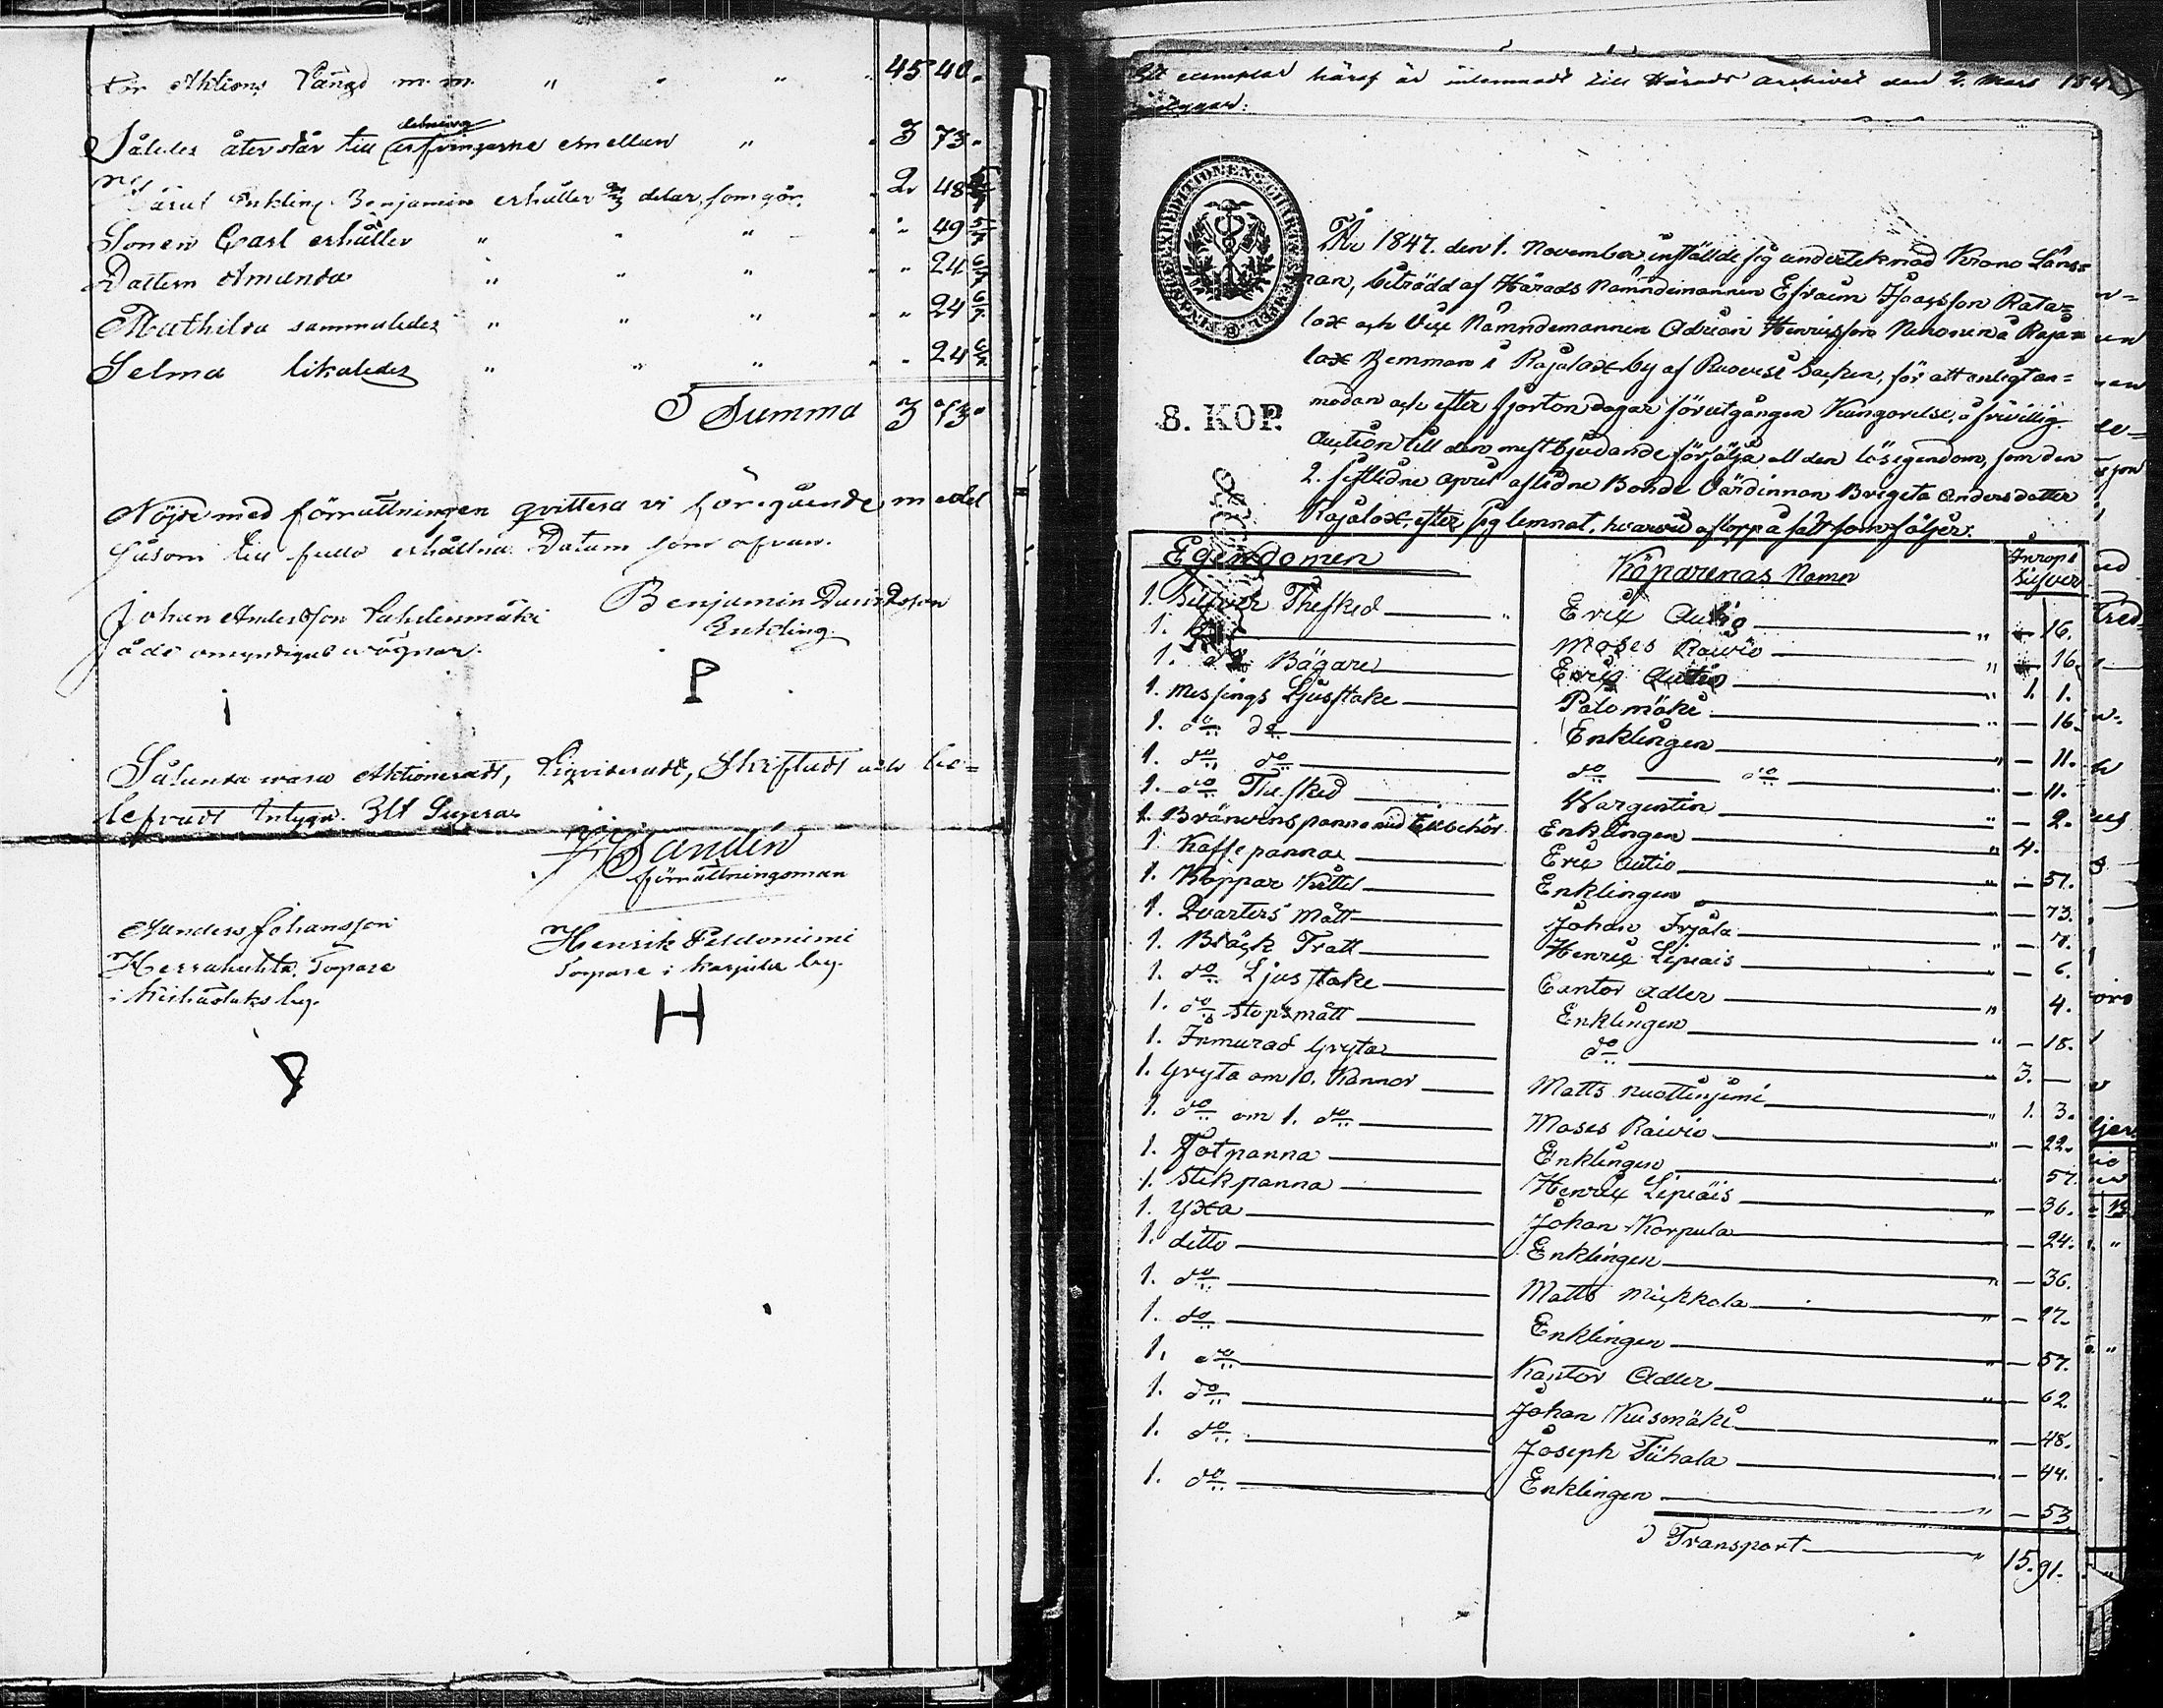 för Aktions Längd m. m. " " " " 45 40.
delning
Således återstår till arfvingarne emellan " " 3 73.
Härut Enkling Benjamin erhåller 2/3 delar, som gör. " 2. 48
Sonen Carl erhåller " " " " " 49
Dottern Amanda " " " " " 24
Mathilda sammaledes " " " " " 24
Selma likaledes " " " " " 24
Summa 3 73.
Nöjde med förrättningen qvittera vi föregående medel
såsom till fullo erhållna. Datum som ofvan.
Johan Andersson Lahdenmäki Benjamin Davidsson
å de omyndigas wägnar. Enkling.
P
Sålunda wara Aktioneradt, Liqvideradt, Skiftadt och be-
lefvadt Intyga. Ut Supra
Sandin
förrättningsman
Anders Johansson Henrik Peldoniemi
Herrahuhta, Torpare Torpare i Karjula by.
i by.
H
Ett exemplar häraf är inlemnadt till Härads archivet den 2. Mars 184
intygar:
FINSKA EXPEDITIONENS CHARTÆ STEMPEL
8. KOP.
År 1847. den 1. November inställde sig undertecknad Krono Läns-
man, biträdd af Härads Nämndemannen Efraim Isacsson Rata-
lax och Vice Nämndemannen Adrian Henriksson Nuhonen å Raja-
lax Hemman i Rajalax by af Ruovesi Socken, för att enligt an-
modan och efter fjorton dagar förutgången Kungörelse, å frivillig
Auction till den mestbjudande försälja all den lösegendom, som den
2. sistlidne April aflidne Bonde Värdinnan Brigita Andersdotter
Rajalax, efter sig lemnat. hvarvid aflopp å sätt som följer:
Egendomen Köparenas Namn Inrop i Silfver
1. Silfver Thesked Eric Autio " — 16.
1. Moses Raivio " — 16.
1. do Bägare Eric Autio " 1. 1.
1. Messings Ljusstake Palomäki " — 16.
1. do do Enklingen " — 11.
1. do do do do " — 11.
1. do Thesked Wargentin " — 2.
1. Bränvinspanna med tillbehör Enklingen " 4.
1. Kaffe panna Eric Autio " — 57.
1. Koppar Kittel Enklingen " — 73.
1. Qvarters Mått Johan Irjala " — 7.
1. Bläck Tratt Henric Lipiäis " — 6.
1. do Ljusstake Cantor Adler " 4.
1. do Stops mått Enklingen " — 18.
1. Inmurad Gryta do " 3. —
1. Gryta om 10. Kannor Matts Nuottiniemi " 1. 3.
1. do om 1. do Moses Raivio " — 22.
1. Fotpanna Enklingen 57.
1. Stekpanna Henric Lipiäis " — 36.
1. Yxa Johan Korpula — 24.
1. ditto Enklingen " — 36.
1. do Matts Mickkola " — 17.
1. do Enklingen " — 57.
1. do Kantor Adler " — 62
1. do Johan Kuismäki " — 48.
1. do Joseph Tiihala " — 44.
1. do Enklingen " — 53
Transport " 15. 91.